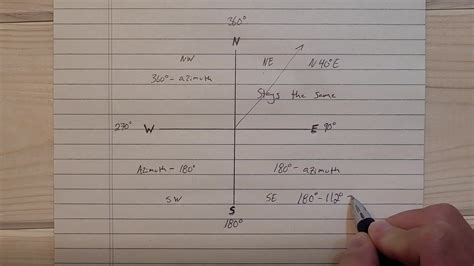 360°
N
NW NE N40°E
360° - azimuth
Stays the same
270° W E 90°
Azimuth - 180° 180° - azimuth
SW SE 180° - 112°
S
180°